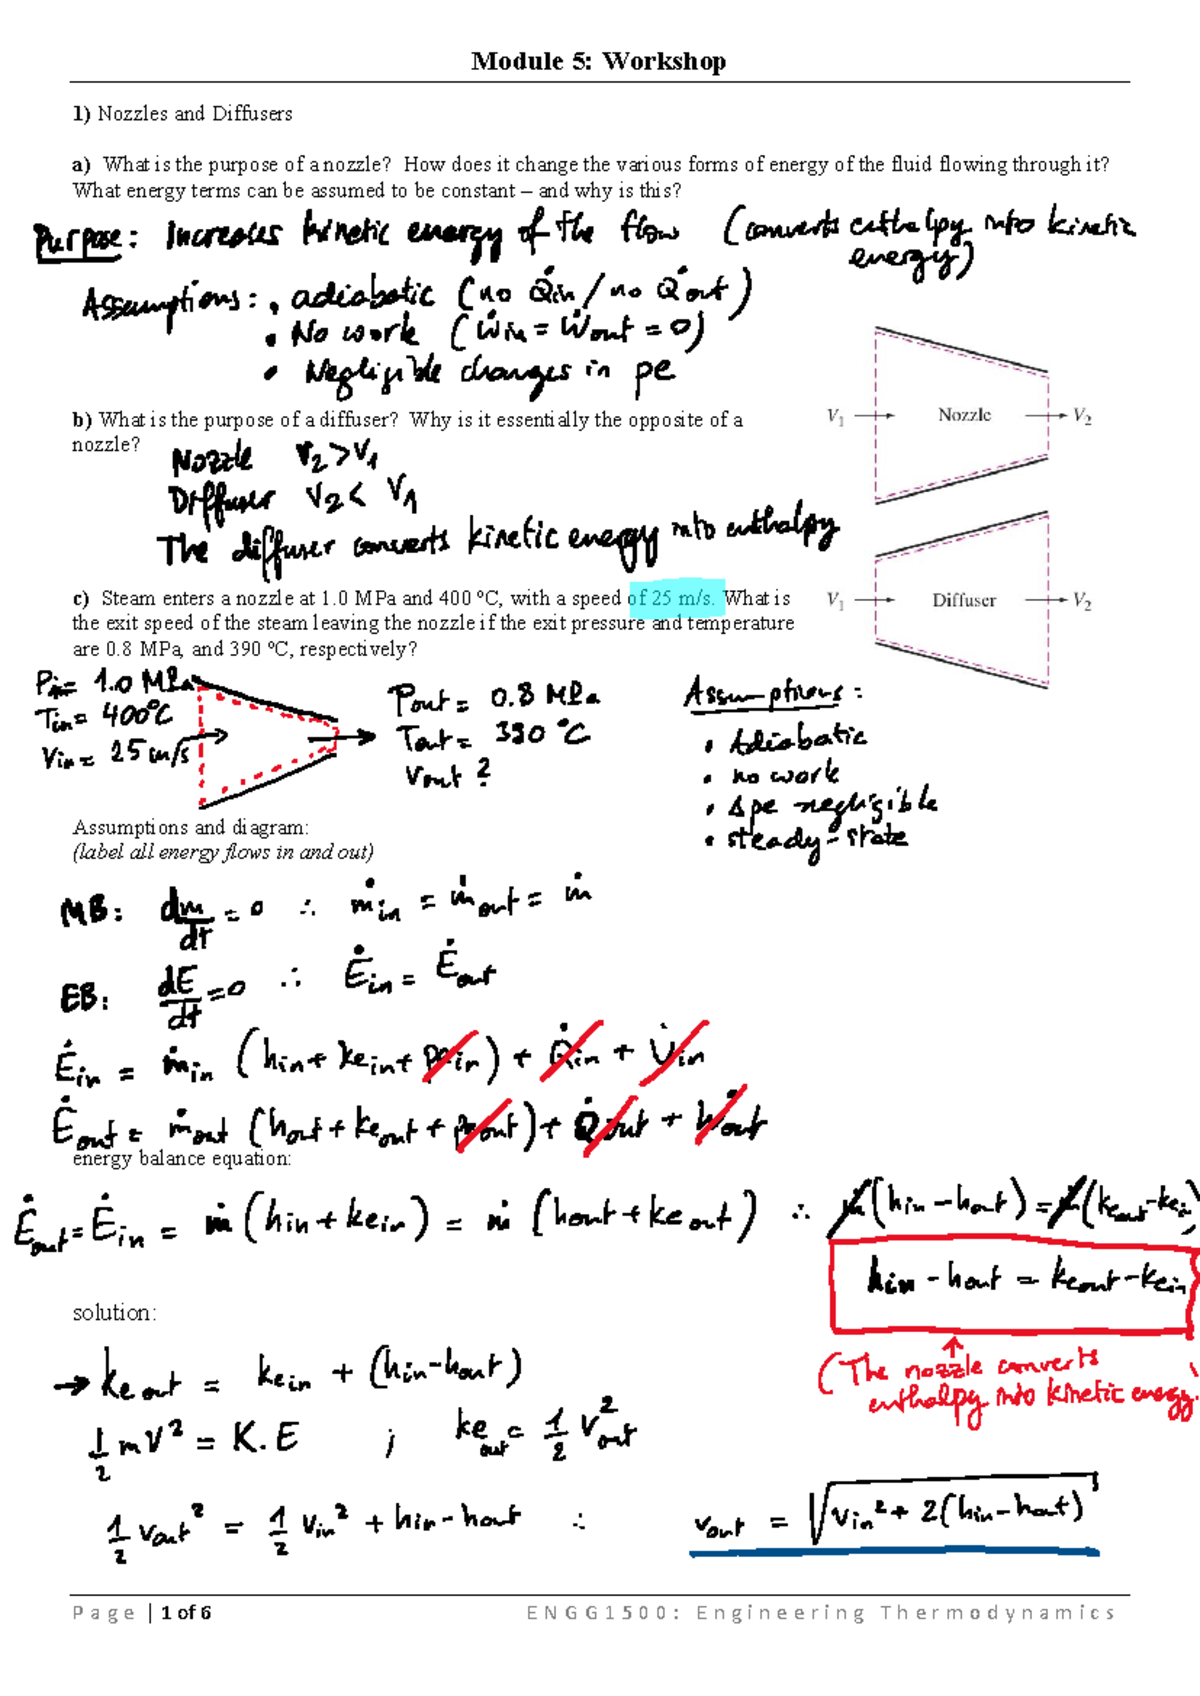 Module 5: Workshop
1) Nozzles and Diffusers
a) What is the purpose of a nozzle? How does it change the various forms of energy of the fluid flowing through it?
What energy terms can be assumed to be constant – and why is this?
Purpose: Increases kinetic energy of the flow (converts enthalpy into kinetic
energy)
Assumptions: • adiabatic (no Q̇in / no Q̇out)
• No work (Ẇin = Ẇout = 0)
• Negligible changes in pe
b) What is the purpose of a diffuser? Why is it essentially the opposite of a
nozzle?
Nozzle V2 > V1
Diffuser V2 < V1
The diffuser converts kinetic energy into enthalpy
V1 Nozzle V2
V1 Diffuser V2
c) Steam enters a nozzle at 1.0 MPa and 400 °C, with a speed of 25 m/s. What is
the exit speed of the steam leaving the nozzle if the exit pressure and temperature
are 0.8 MPa, and 390 °C, respectively?
Pin = 1.0 MPa
Tin = 400°C
Vin = 25 m/s
Pout = 0.8 MPa
Tout = 390 °C
Vout ?
Assumptions:
• Adiabatic
• no work
• Δpe negligible
• steady-state
Assumptions and diagram:
(label all energy flows in and out)
MB: dm/dt = 0 ∴ ṁin = ṁout = ṁ
EB: dE/dt = 0 ∴ Ėin = Ėout
Ėin = ṁin (hin + kein + pein) + Q̇in + Ẇin
Ėout = ṁout (hout + keout + peout) + Q̇out + Ẇout
energy balance equation:
Ėout = Ėin = ṁ (hin + kein) = ṁ (hout + keout) ∴ ṁ(hin – hout) = ṁ(keout – kein)
hin – hout = keout – kein
(The nozzle converts
enthalpy into kinetic energy.
solution:
→ keout = kein + (hin – hout)
1/2 mV² = K.E ; keout = 1/2 V²out
1/2 Vout² = 1/2 Vin² + hin – hout ∴ Vout = √(Vin² + 2(hin – hout))
Page | 1 of 6 ENGG1500: Engineering Thermodynamics